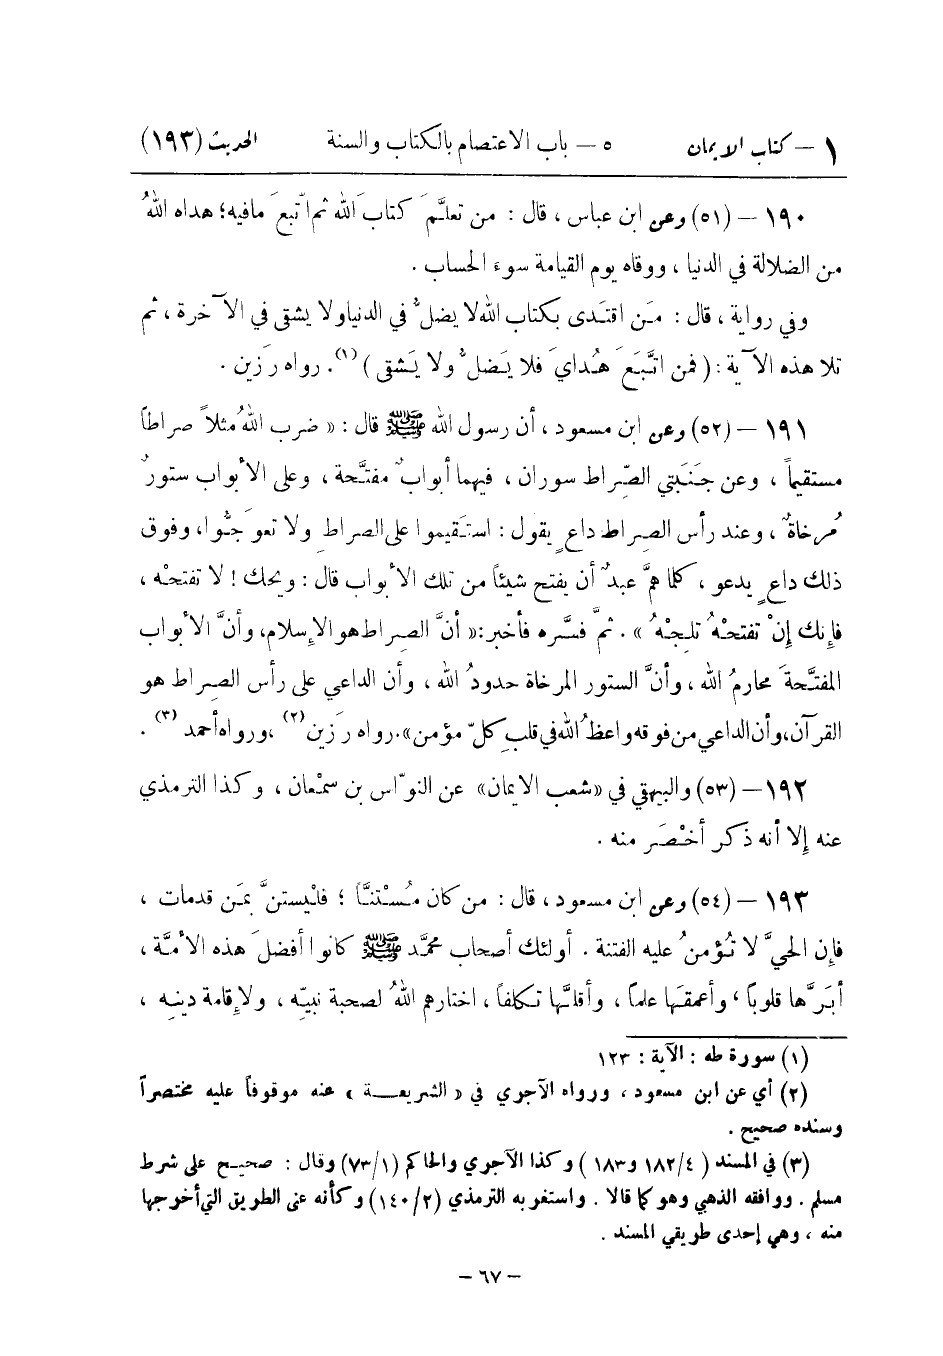 ١ – كتاب الايمان ٥ – باب الاعتصام بالكتاب والسنة الحديث (١٩٣)
١٩٠ – (٥١) وعن ابن عباس ، قال : من تعلَّمَ كتابَ الله ثم اتّبعَ مافيه؛ هداه اللهُ
من الضلالة في الدنيا ، ووقاه يوم القيامة سوءَ الحساب .
وفي رواية ، قال : مَن اقتَدى بكتاب الله لا يضلُّ في الدنيا ولا يشقى في الآخرة ، ثم
تلا هذه الآية : ( فمن اتَّبَعَ هُدايَ فلا يَضلُّ ولا يَشقى ) (١). رواه رَزين .
١٩١ – (٥٢) وعن ابن مسعود ، أن رسول الله ﷺ قال : « ضرب اللهُ مثلاً صراطاً
مستقيماً ، وعن جَنَبَتي الصِّراط سوران ، فيهما أبوابٌ مفتَّحة ، وعلى الأبواب ستورٌ
مُرخاةٌ ، وعند رأس الصراط داعٍ يقول : استَقيموا على الصراطِ ولا تعوَجُّوا ، وفوق
ذلك داعٍ يدعو ، كلما همَّ عبدٌ أن يفتح شيئاً من تلك الأبواب قال : ويحك ! لا تفتحْه ،
فإنك إنْ تفتحْهُ تلجْهُ » . ثمَّ فسَّره فأخبر :« أنَّ الصراط هو الإسلام، وأنَّ الأبواب
المفتَّحةَ محارمُ الله ، وأنَّ الستور المرخاة حدودُ الله ، وأن الداعي على رأس الصراط هو
القرآن، وأن الداعي من فوقه واعظُ الله في قلبِ كلّ مؤمن». رواه رَزين(٢) ،ورواه أحمد (٣) .
١٩٢ – (٥٣) والبيهقي في «شعب الايمان» عن النوّاس بن سمْعان ، وكذا الترمذي
عنه إلا أنه ذكر أخْصَر منه .
١٩٣ – (٥٤) وعن ابن مسعود ، قال : من كان مُسْتنّاً ؛ فلْيستنَّ بمَن قدمات ،
فإن الحيَّ لا تُؤمنُ عليه الفتنة . أولئك أصحاب محمَّد ﷺ كانوا أفضلَ هذه الأمَّة ،
أبَرَّها قلوباً ، وأعمقَها علماً ، وأقلَّها تكلفاً ، اختارهم اللهُ لصحبة نبيّه ، ولإقامة دينه ،
(١) سورة طه : الآية : ١٢٣
(٢) أي عن ابن مسعود ، ورواه الآجري في « الشريعــة » عنه موقوفاً عليه مختصراً
وسنده صحيح .
(٣) في المسند ( ١٨٢/٤ و١٨٣ ) وكذا الآجري والحاكم (٧٣/١) وقال : صحيح على شرط
مسلم . ووافقه الذهبي وهو كما قالا . واستغربه الترمذي (١٤٠/٢) وكأنه عنى الطريق التي أخرجها
منه ، وهي إحدى طريقي المسند .
– ٦٧ –